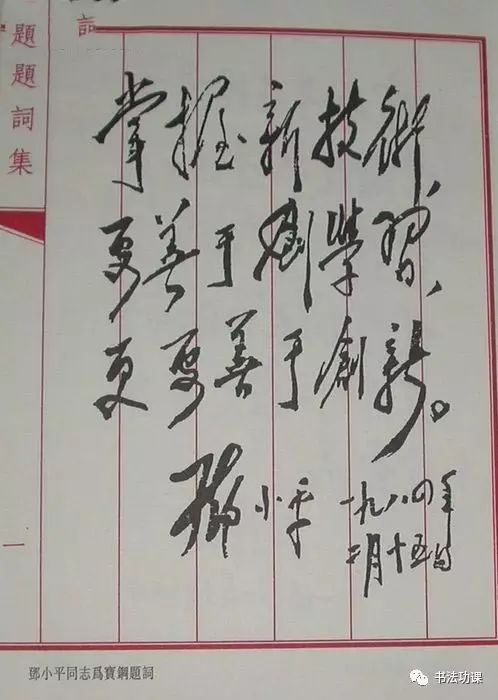 題題詞集
掌握新技術、
要善于學習、
更要善于創新。
鄧小平
一九八四年
二月十五日
一
鄧小平同志爲寶鋼題詞
书法功课